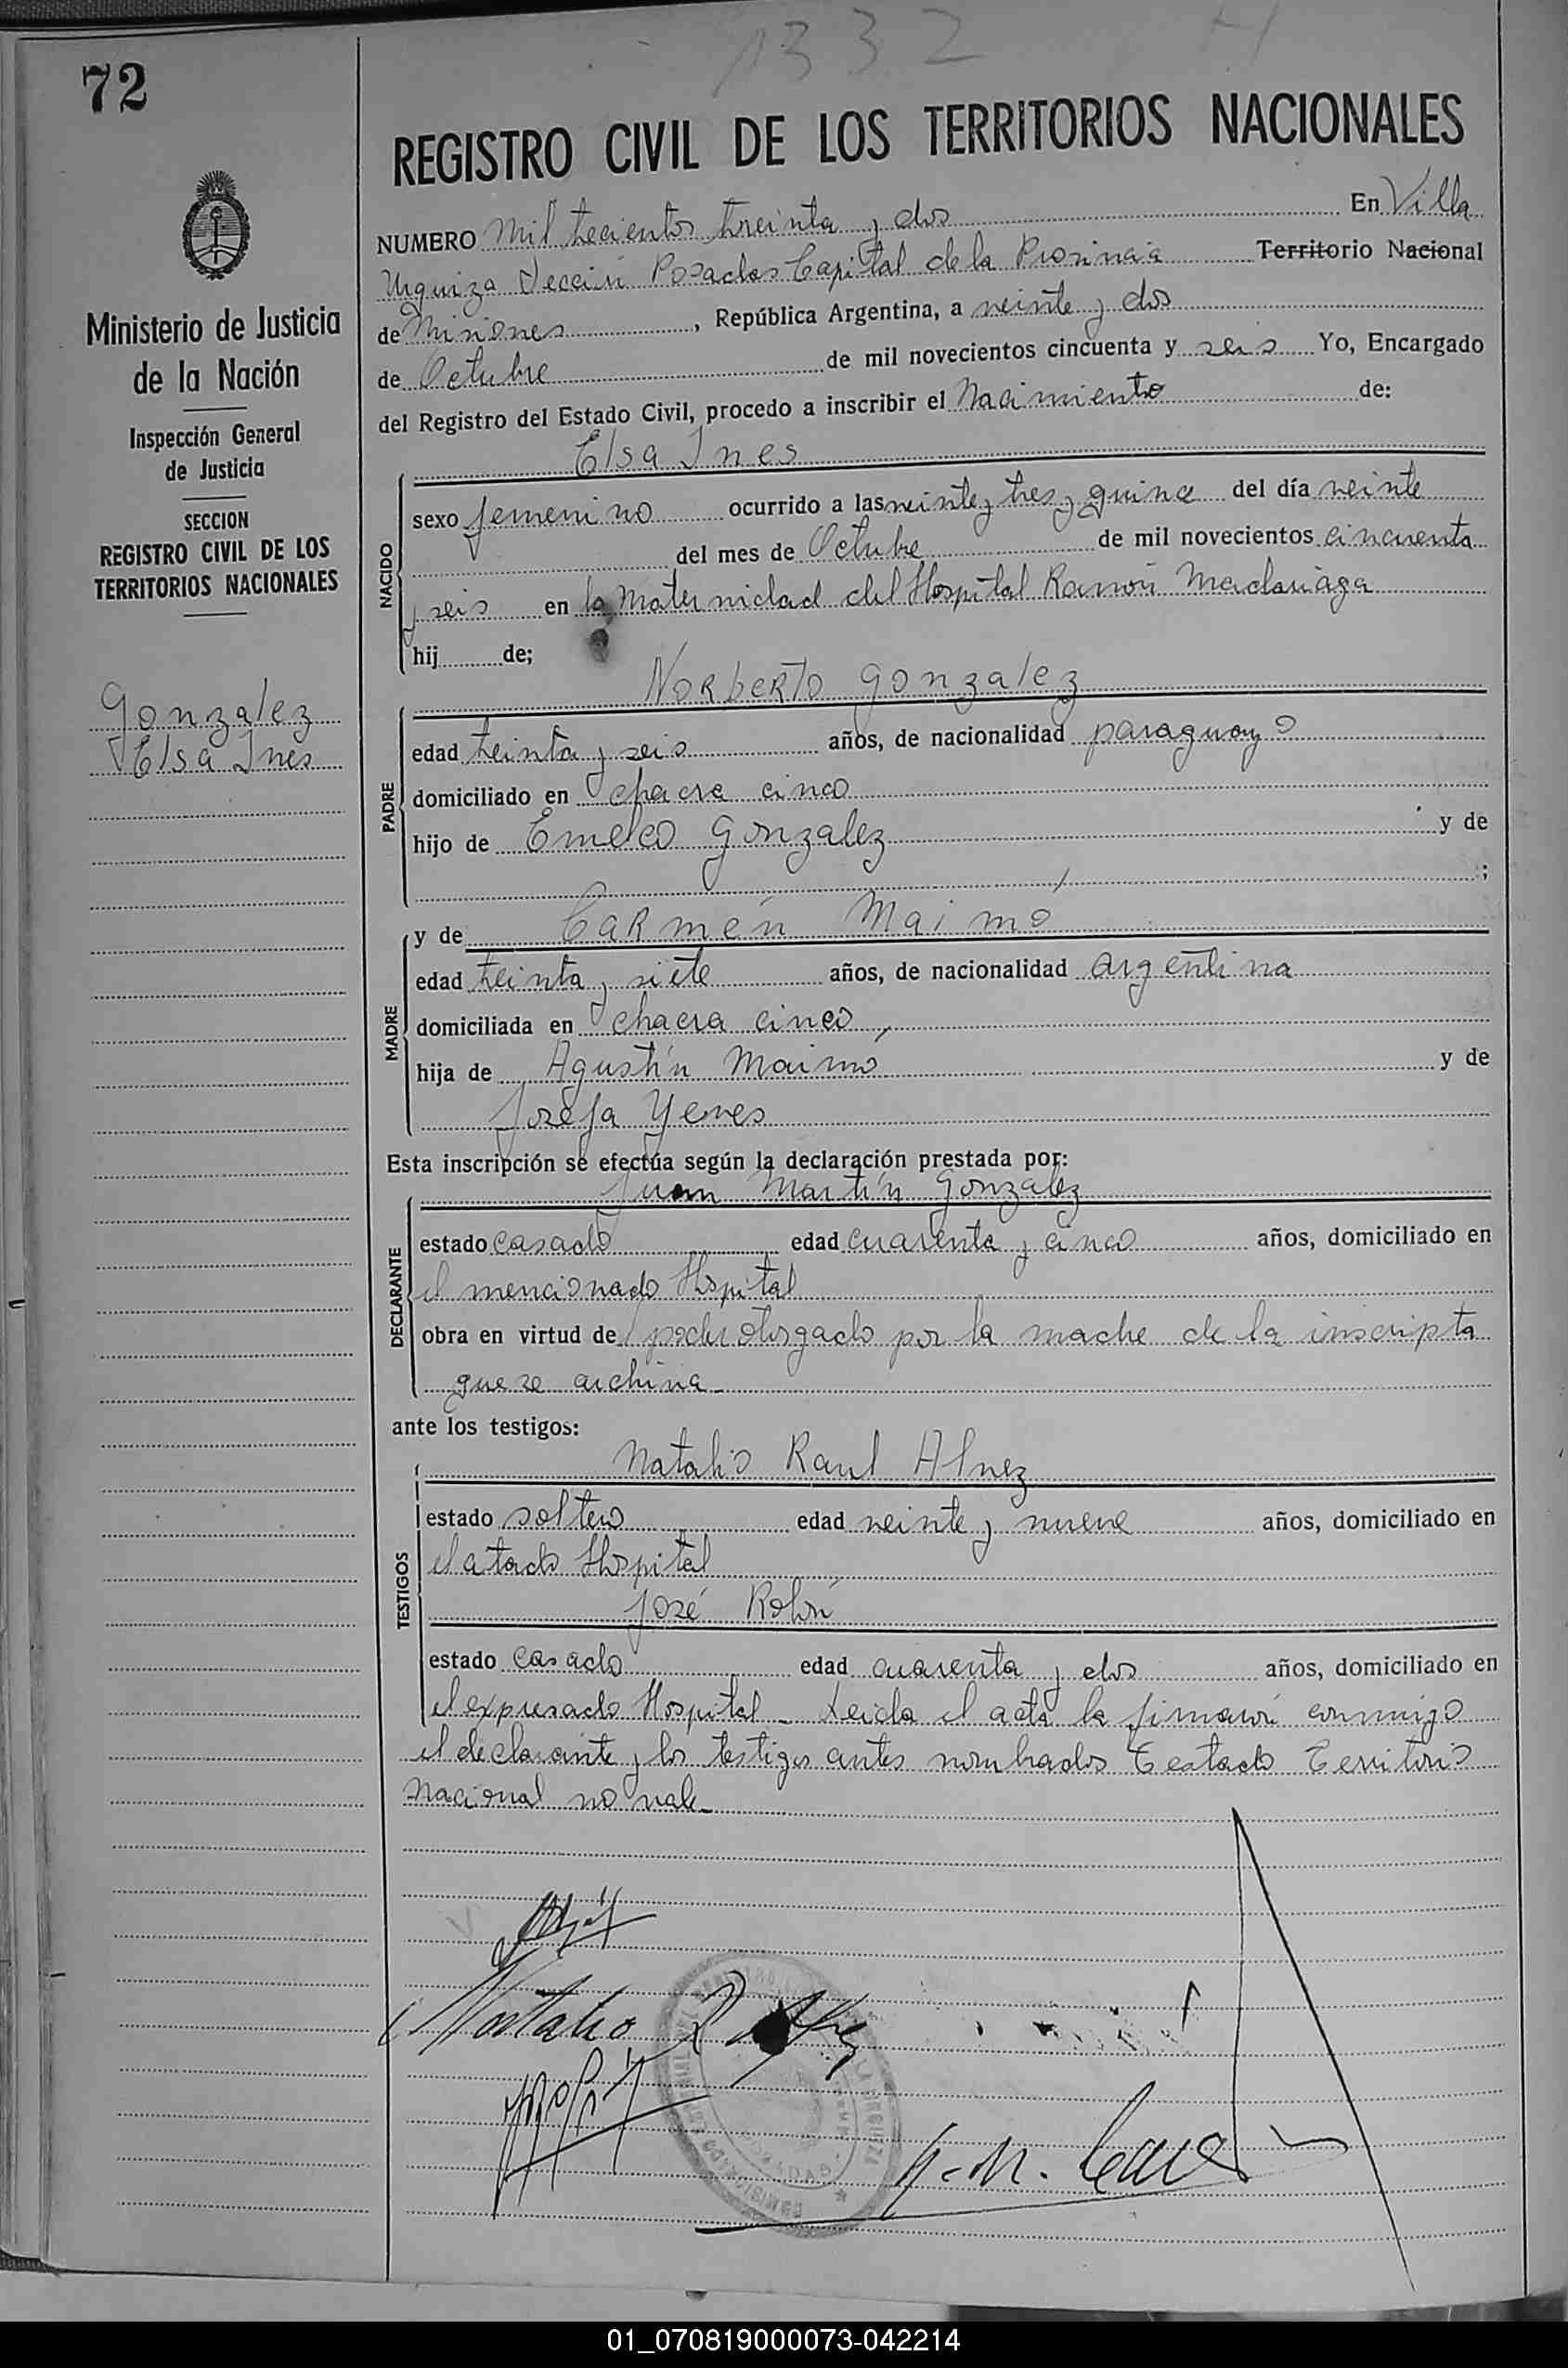 1332
72
REGISTRO CIVIL DE LOS TERRITORIOS NACIONALES
NUMERO Mil trecientos treinta y dos En Villa
Urquiza Sección Posadas Capital de la Provincia Territorio Nacional
de Misiones, República Argentina, a veinte y dos
de Octubre de mil novecientos cincuenta y seis Yo, Encargado
del Registro del Estado Civil, procedo a inscribir el Nacimiento de:
Ministerio de Justicia
de la Nación
Inspección General
de Justicia
SECCION
REGISTRO CIVIL DE LOS
TERRITORIOS NACIONALES
Gonzalez
Elsa Ines
NACIDO
Elsa Ines
sexo femenino ocurrido a las veinte y tres y quince del día veinte
del mes de Octubre de mil novecientos cincuenta
y seis en la Maternidad del Hospital Ramón Madariaga
hij de;
PADRE
Norberto Gonzalez
edad treinta y seis años, de nacionalidad paraguayo
domiciliado en chacra cinco
hijo de Gonzalez y de
;
MADRE
y de Carmen Maimó
edad treinta y siete años, de nacionalidad argentina
domiciliada en chacra cinco
hija de Agustín Maimó y de
Josefa Yenes
Esta inscripción se efectúa según la declaración prestada por:
DECLARANTE
Juan Martín Gonzalez
estado casado edad cuarenta y cinco años, domiciliado en
el mencionado Hospital
obra en virtud de poder otorgado por la madre de la inscripta
que se archiva
ante los testigos:
TESTIGOS
Natalio Raul Alvez
estado soltero edad veinte y nueve años, domiciliado en
el citado Hospital
José Rolón
estado casado edad cuarenta y dos años, domiciliado en
el expresado Hospital - Leida el acta la firmaron conmigo
el declarante y los testigos antes nombrados Testado Territorio
Nacional no vale
Natalio R Alvez
01_070819000073-042214